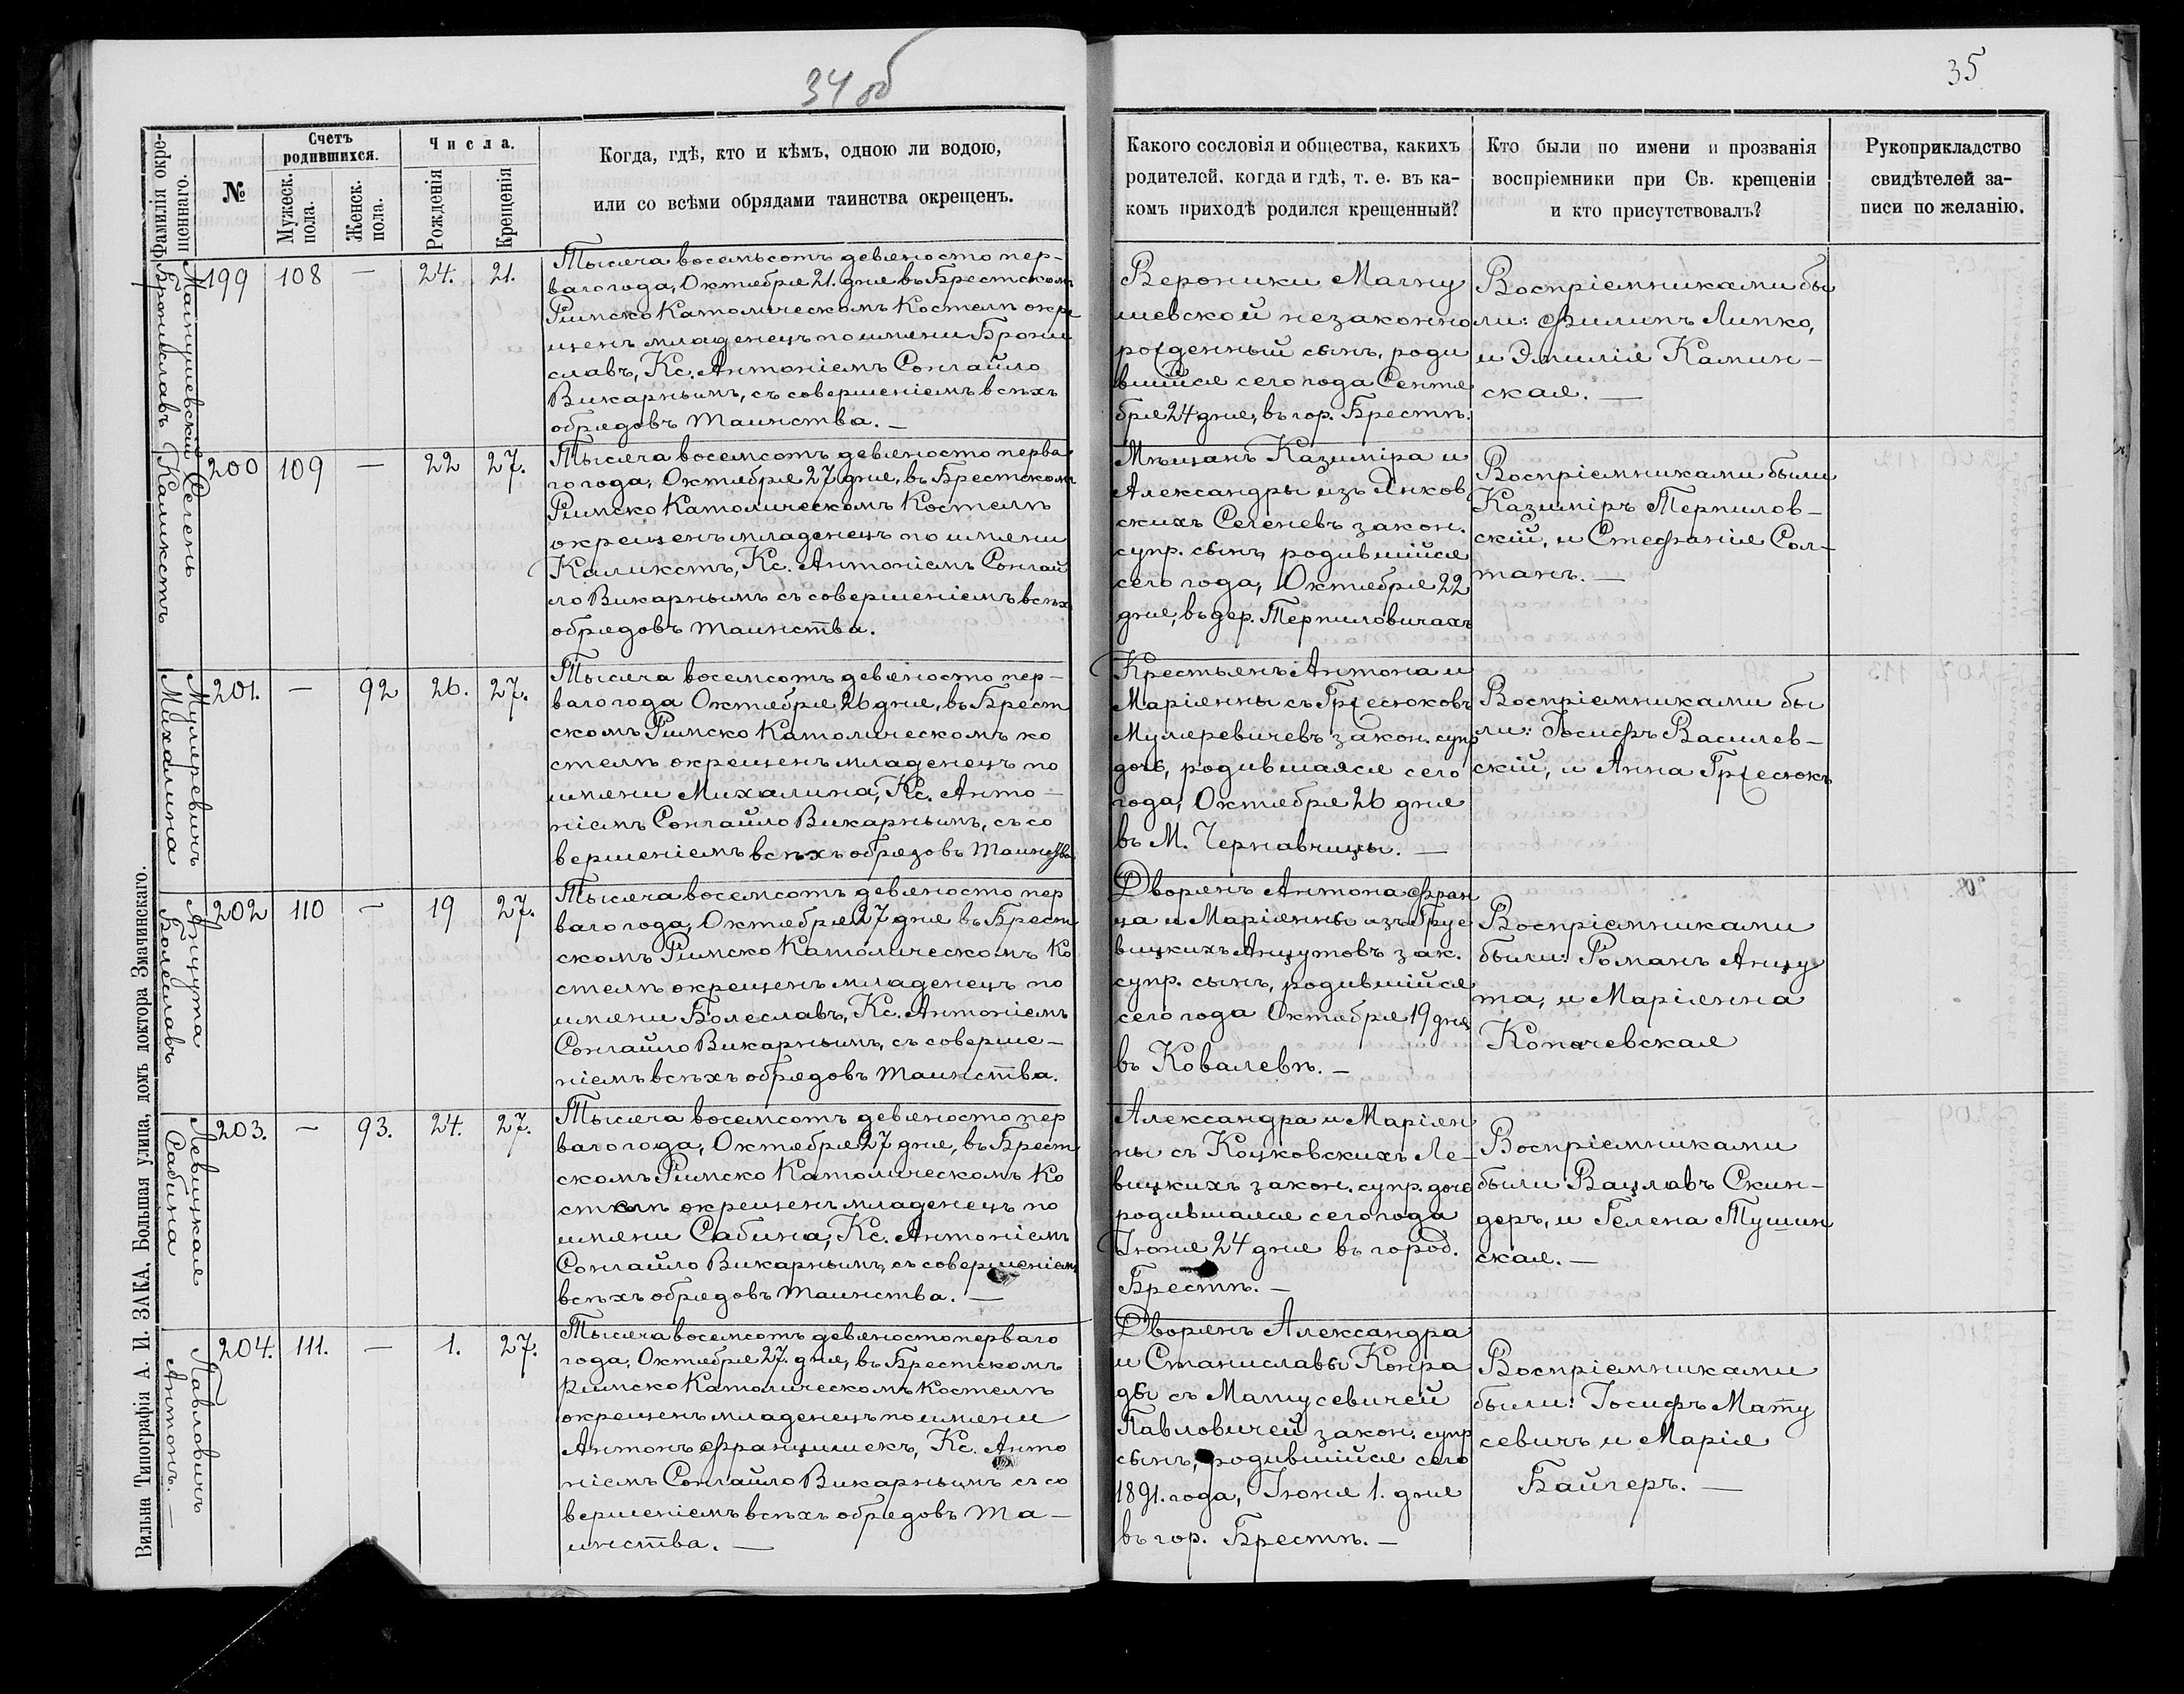 34 об
35
Фамилія окрещеннаго.
№
Счетъ родившихся.
Мужеск. пола.
Женск. пола.
Числа.
Рожденія
Крещенія
Когда, гдѣ, кто и кѣмъ, одною ли водою,
или со всѣми обрядами таинства окрещенъ.
Какого сословія и общества, какихъ
родителей, когда и гдѣ, т. е. въ ка-
комъ приходѣ родился крещенный?
Кто были по имени и прозванія
воспріемники при Св. крещеніи
и кто присутствовалъ?
Рукоприкладство
свидѣтелей за-
писи по желанію.
Магнушевскій
Брониславъ
199 108 — 24. 21.
Тысяча восемьсотъ девяносто пер-
ваго года, Октября 21. дня въ Брестскомъ
Римско Католическомъ Костелѣ окре
щенъ младенецъ по имени Брони
славъ, Кс. Антоніемъ Сонгайло
Викарнымъ, съ совершеніемъ всѣхъ
обрядовъ таинства. —
Вероники Магну
шевской незаконно
рожденный сынъ, роди
вшійся сего года Сентя
бря 24 дня, въ гор. Брестѣ.
Воспріемниками бы
ли: Филипъ Липко,
и Эмилія Камин-
ская. —
Сегень
Каликстъ
200 109 — 22 27.
Тысяча восемсотъ девяносто перва
го года, Октября 27 дня, въ Брестскомъ
Римско Католическомъ Костелѣ
окрещенъ младенецъ по имени
Каликстъ, Кс. Антоніемъ Сонгай
ло Викарнымъ съ совершеніемъ всѣхъ
обрядовъ таинства.
Мѣщанъ Казиміра и
Александры изъ Янков
скихъ Сегеневъ закон.
супр. сынъ, родившійся
сего года, Октября 22
дня, въ дер. Терпиловичахъ
Воспріемниками были
Казиміръ Терпилов-
скій, и Стефанія Сол-
танъ. —
Муляревичъ
Михалина
201. — 92 26. 27.
Тысяча восемсотъ девяносто пер-
ваго года Октября 26 дня, въ Брест
скомъ Римско Католическомъ ко
стелѣ окрещенъ младенецъ по
имени Михалина, Кс. Анто-
ніемъ Сонгайло Викарнымъ, съ со
вершеніемъ всѣхъ обрядовъ таинства
Крестьянъ Антона и
Маріянны съ Гржесюковъ
Муляревичевъ закон. супр
дочь, родившаяся сего
года, Октября 26 дня
въ М. Чернавчицы. —
Воспріемниками бы
ли: Іосифъ Василев-
скій, и Анна Гржесюкъ
Анцута
Болеславъ
202 110 — 19 27.
Тысяча восемсотъ девяносто пер
ваго года, Октября 27 дня въ Брест
скомъ Римско Католическомъ Ко
стелѣ окрещенъ младенецъ по
имени Болеславъ, Кс. Антоніемъ
Сонгайло Викарнымъ, съ соверше-
ніемъ всѣхъ обрядовъ таинства.
Дворянъ Антона Фран
ца и Маріянны изъ Грус
вицкихъ Анцутовъ зак.
супр. сынъ, родившійся
сего года Октября 19 дня
въ Ковалевѣ. —
Воспріемниками
были: Романъ Анцу
та, и Маріянна
Копачевская
Левицкая
Сабина
203. — 93. 24. 27.
Тысяча восемсотъ девяносто пер
ваго года, Октября 27 дня, въ Брест
скомъ Римско Католическомъ Ко
стелѣ окрещенъ младенецъ по
имени Сабина, Кс. Антоніемъ
Сонгайло Викарнымъ, съ совершеніемъ
всѣхъ обрядовъ таинства. —
Александра и Маріян
ны съ Коцковскихъ Ле-
вицкихъ закон. супр. дочь
родившаяся сего года
Іюня 24 дня въ город.
Брестѣ. —
Воспріемниками
были Вацлавъ Скин-
деръ, и Гелена Тушин
ская. —
Павловичъ
Антонъ. —
204. 111. — 1. 27.
Тысяча восемсотъ девяносто перваго
года, Октября 27. дня, въ Брестскомъ
Римско Католическомъ Костелѣ
окрещенъ младенецъ по имени
Антонъ Францишекъ, Кс. Анто
ніемъ Сонгайло Викарнымъ съ со
вершеніемъ всѣхъ обрядовъ та-
инства. —
Дворянъ Александра
и Станиславы Конра
ды съ Матусевичей
Павловичей закон. супр
сынъ, родившійся сего
1891. года, Іюня 1. дня
въ гор. Брестѣ. —
Воспріемниками
были: Іосифъ Мату
севичъ и Марія
Байгеръ. —
Вильна Типографія А. И. ЗАКА, Большая улица, домъ доктора Змачинскаго.